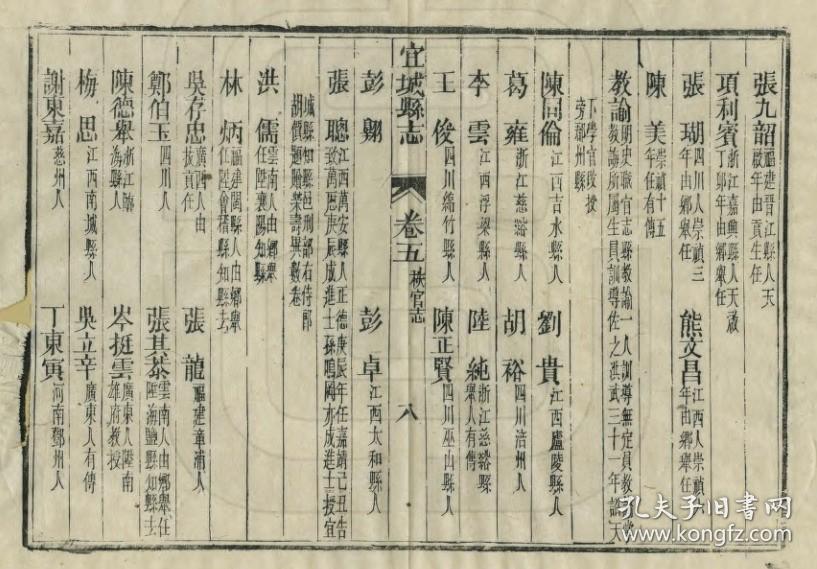 張九韶福建晉江縣人天啟年由貢生任
項利賓浙江嘉興縣人天啟丁卯年由鄉舉任
張瑚四川人崇禎三年由鄉舉任 熊文昌江西人崇禎年由鄉舉任
陳美崇禎十五年任有傳
教諭明史職官志縣教諭一人訓導無定員教諭掌教誨所屬生員訓導佐之洪武三十一年詔天
下學官改授旁郡州縣
陳同倫江西吉水縣人 劉貴江西廬陵縣人
葛雍浙江慈谿縣人 胡裕四川涪州人
李雲江西浮梁縣人 陸純浙江慈谿縣舉人有傳
王俊四川綿竹縣人 陳正賢四川巫山縣人
宜城縣志 卷五 秩官志 八
彭翱 彭卓江西太和縣人
張聰江西萬安縣人正德庚辰年任嘉靖己丑告致萬歷庚辰成進士孫鳴岡亦成進士授宜
城縣知縣邑刑部右侍郎胡價題贈榮壽異數卷
洪儒雲南人由鄉舉任陞襄陽知縣
林炳福建閩縣人由鄉舉任陞會稽縣知縣去
吳存忠廣西人由拔貢任 張龍福建漳浦人
鄭伯玉四川人 張其蓁雲南人由鄉舉任陞海鹽縣知縣去
陳德舉浙江臨海縣人 岑挺雲廣東人陞南雄府教授
梅思江西南城縣人 吳立辛廣東人有傳
謝東嘉慈州人 丁東寅河南鄧州人
孔夫子旧书网
www.kongfz.com